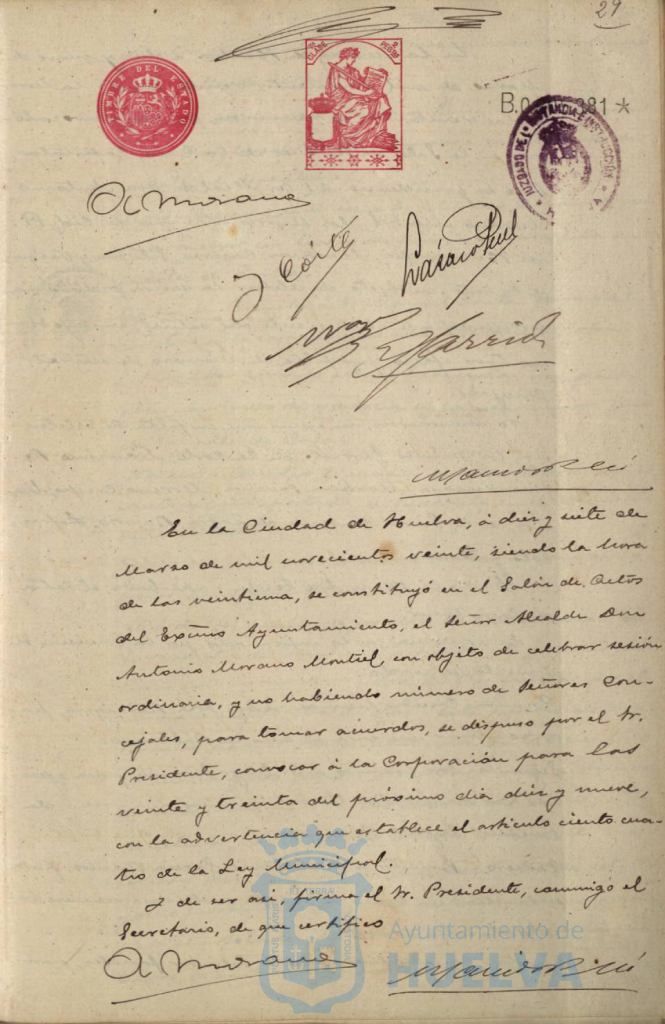 29
TIMBRE DEL ESTADO
CLASE
PESOS
B.0 381 *
JUZGADO DE 1ª INSTANCIA E INSTRUCCIÓN
A Morano
En la Ciudad de Huelva, á diez y siete de
Marzo de mil novecientos veinte, siendo la hora
de las veintiuna, se constituyó en el Salón de Actos
del Excmo Ayuntamiento, el Señor Alcalde Don
Antonio Morano Montiel, con objeto de celebrar sesión
ordinaria, y no habiendo número de Señores Con-
cejales, para tomar acuerdos, se dispuso por el Sr.
Presidente, convocar á la Corporación para las
veinte y treinta del próximo dia diez y nueve,
con la advertencia que establece el articulo ciento cua-
tro de la Ley Municipal.
Y de ser asi, firma el Sr. Presidente, conmigo el
Secretario, de que certifico
A Morano
Ayuntamiento de
HUELVA